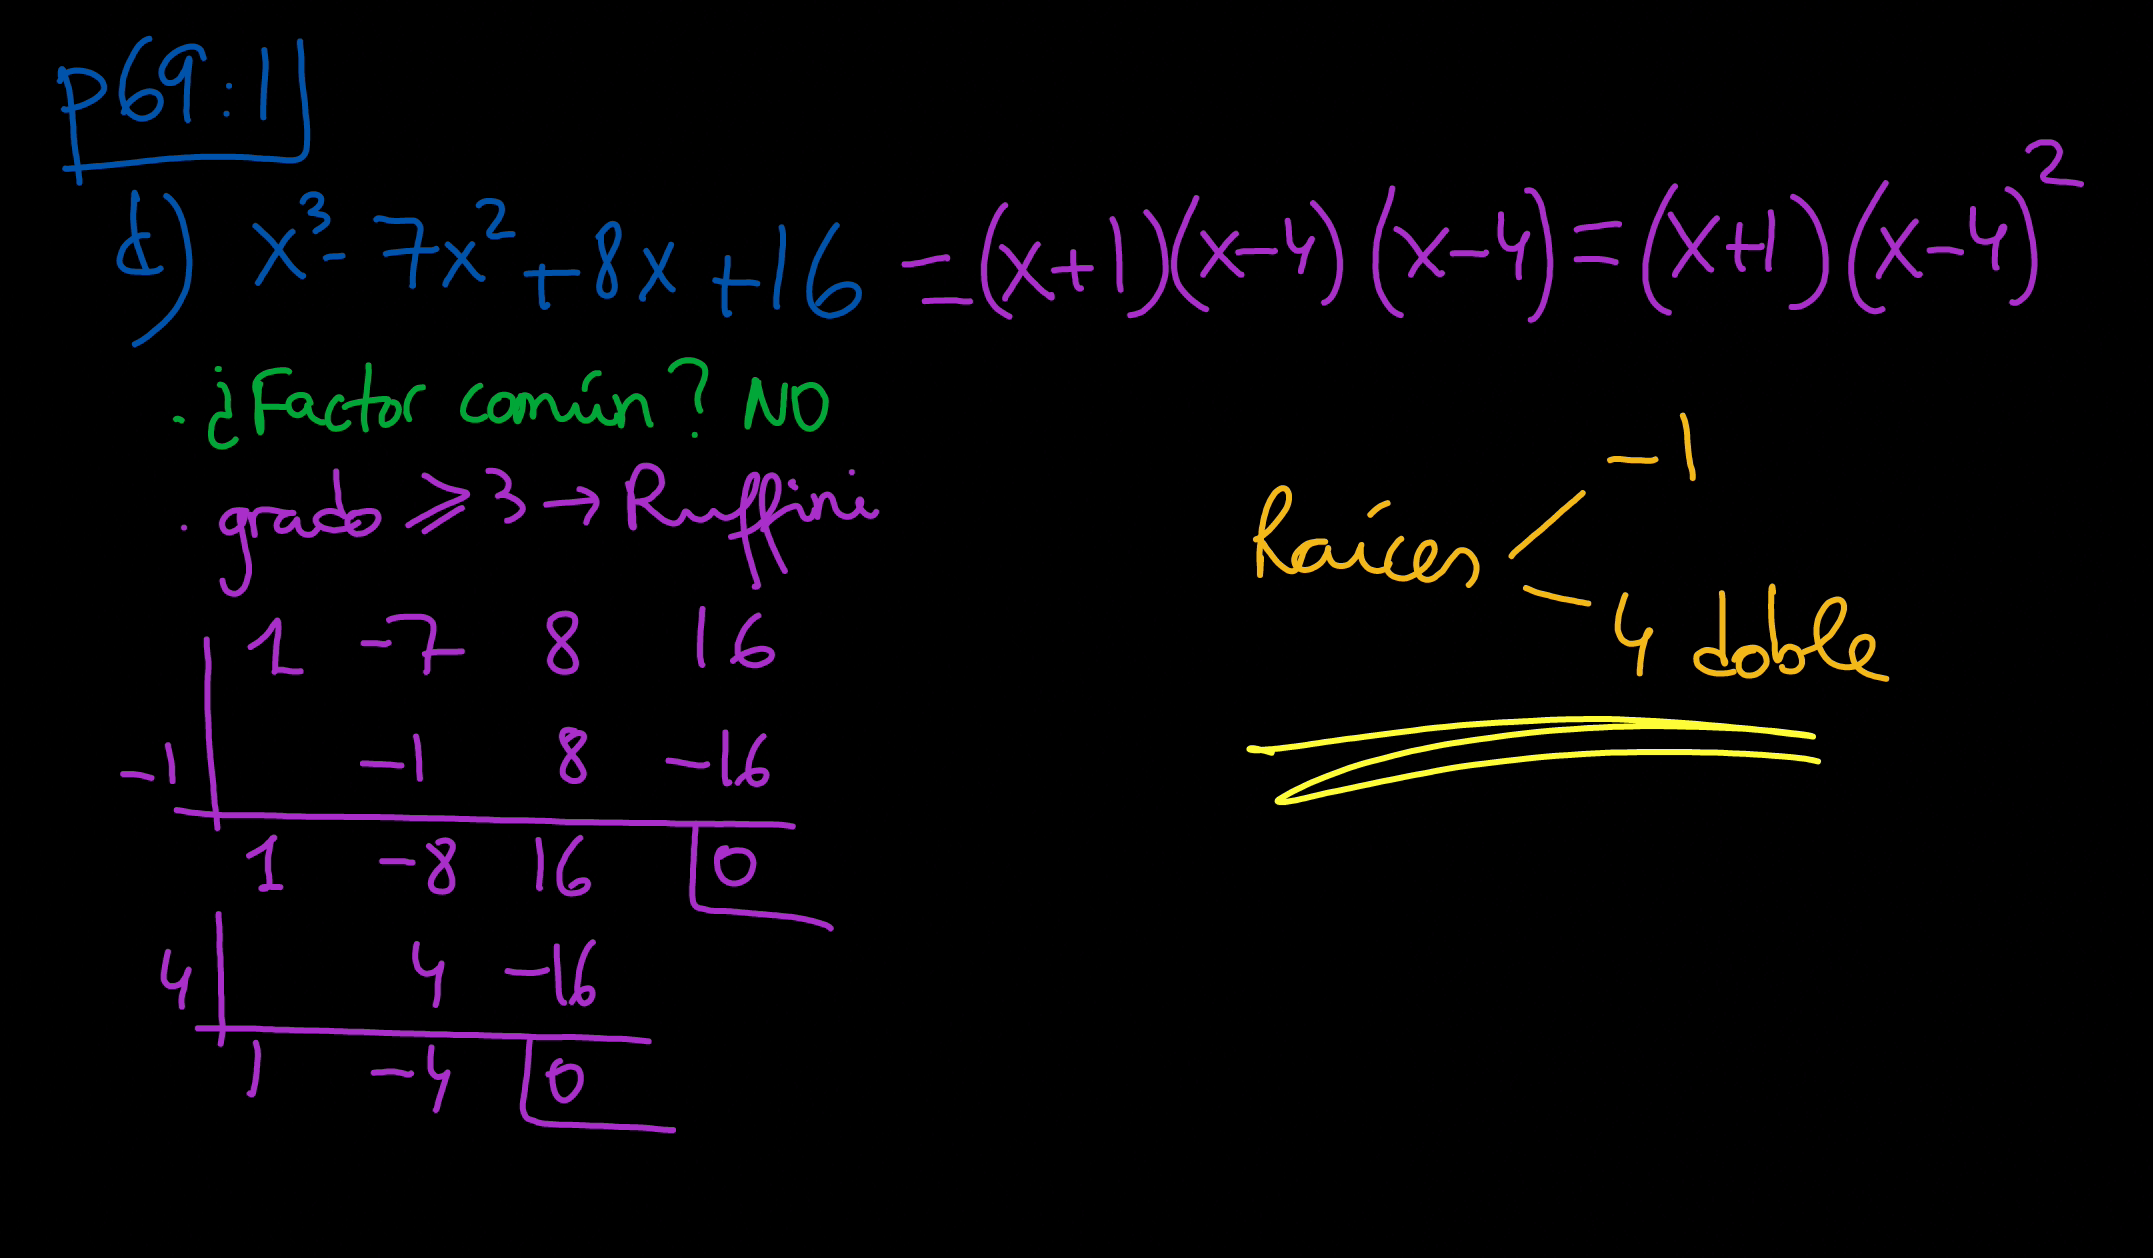 p69:1
d) x³-7x²+8x+16 =(x+1)(x-4)(x-4)=(x+1)(x-4)²
· ¿Factor común? NO
· grado ⩾3→Ruffini
1 -7 8 16
-1 -1 8 -16
1 -8 16 0
4 4 -16
1 -4 0
-1
Raíces
4 doble